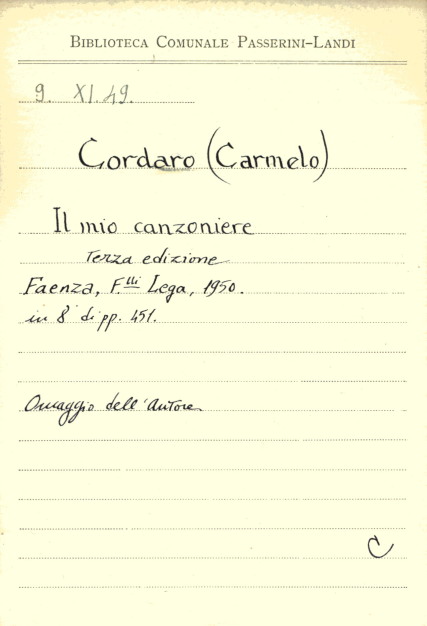 BIBLIOTECA COMUNALE PASSERINI-LANDI
9. XI. 49.
Cordaro (Carmelo)
Il mio canzoniere
Terza edizione
Faenza, F.lli Lega, 1950.
in 8° di pp. 451.
Omaggio dell'Autore
C